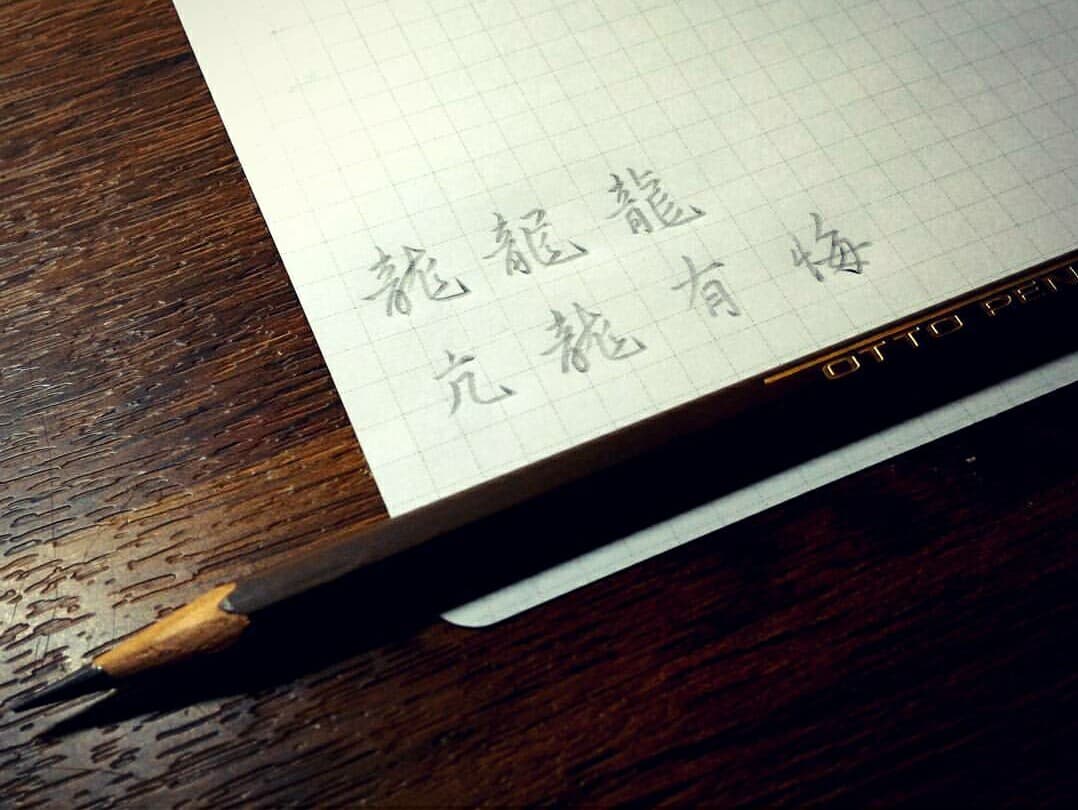 龍龍龍
亢龍有悔
OTTO PEN